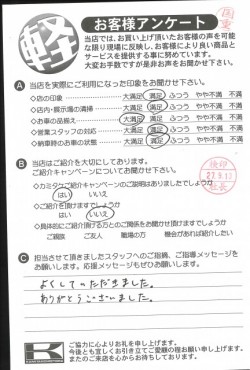 軽
お客様アンケート
当店では、お買い上げ頂いたお客様の声を可能
な限り現場に反映し、お客様により良い商品と
サービスを提供する事に努めています。
大変お手数ですが是非お声をお聞かせ下さい。
A 当店を実際にご利用になった印象をお聞かせ下さい。
◇店の印象 大満足 満足 ふつう やや不満 不満
◇店内・展示場の清掃 大満足 満足 ふつう やや不満 不満
◇お車の品揃え 大満足 満足 ふつう やや不満 不満
◇営業スタッフの対応 大満足 満足 ふつう やや不満 不満
◇納車時のお車の状態 大満足 満足 ふつう やや不満 不満
B 当店はご紹介を大切にしております。
ご紹介キャンペーンについてお聞かせ下さい。
◇カミタケご紹介キャンペーンのご説明はありましたでしょうか
はい いいえ
◇ご紹介を頂けますでしょうか
はい いいえ
◇具体的にご紹介頂ける方とのご関係をお聞かせ頂けますでしょうか
ご親族 ご友人 職場の方 機会があれば紹介したい
C 担当させて頂きましたスタッフへのご指摘、ご指導メッセージを
お願いします。応援メッセージもぜひお願いします。
よくしていただきました。
ありがとうございました。
ご協力に心よりお礼を申し上げます。
今後とも宜しくお引き立てご愛顧の程お願い申し上げます。
またのご来店を心からお待ちしております。